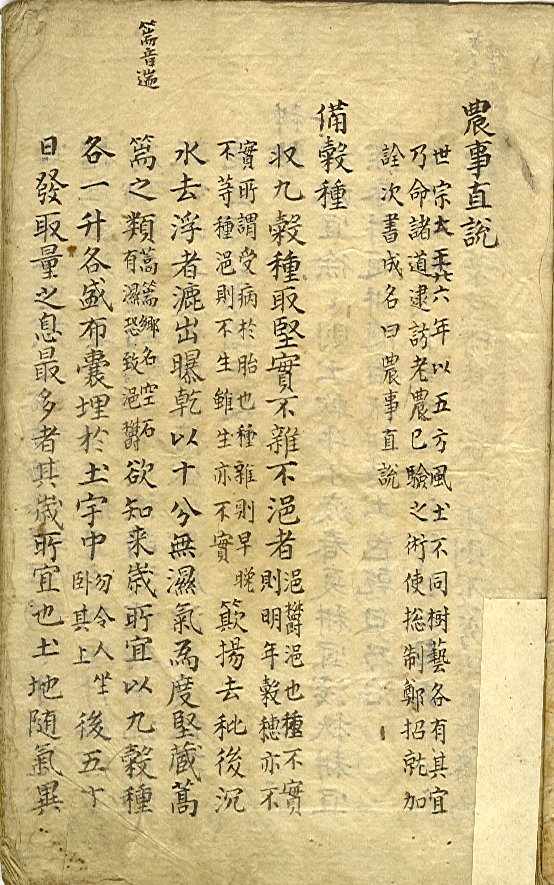 農事直說
世宗大王六年以五方風土不同樹藝各有其宜
乃命諸道逮訪老農已驗之術使捴制鄭招就加
詮次書成名曰農事直說
備穀種
収九穀種取堅實不雜不浥者浥欝浥也種不實則明年穀穗亦不
實所謂受病於胎也種雜則早晚不等種浥則不生雖生亦不實簸揚去秕後沉
水去浮者漉出曝乾以十分無濕氣為度堅藏蒿
篅之類蒿篅鄉名空石有濕恐致浥欝欲知来歲所宜以九穀種
各一升各盛布囊埋於土宇中勿令人坐卧其上後五十
日發取量之息最多者其歲所宜也土地隨氣異
篅音遄